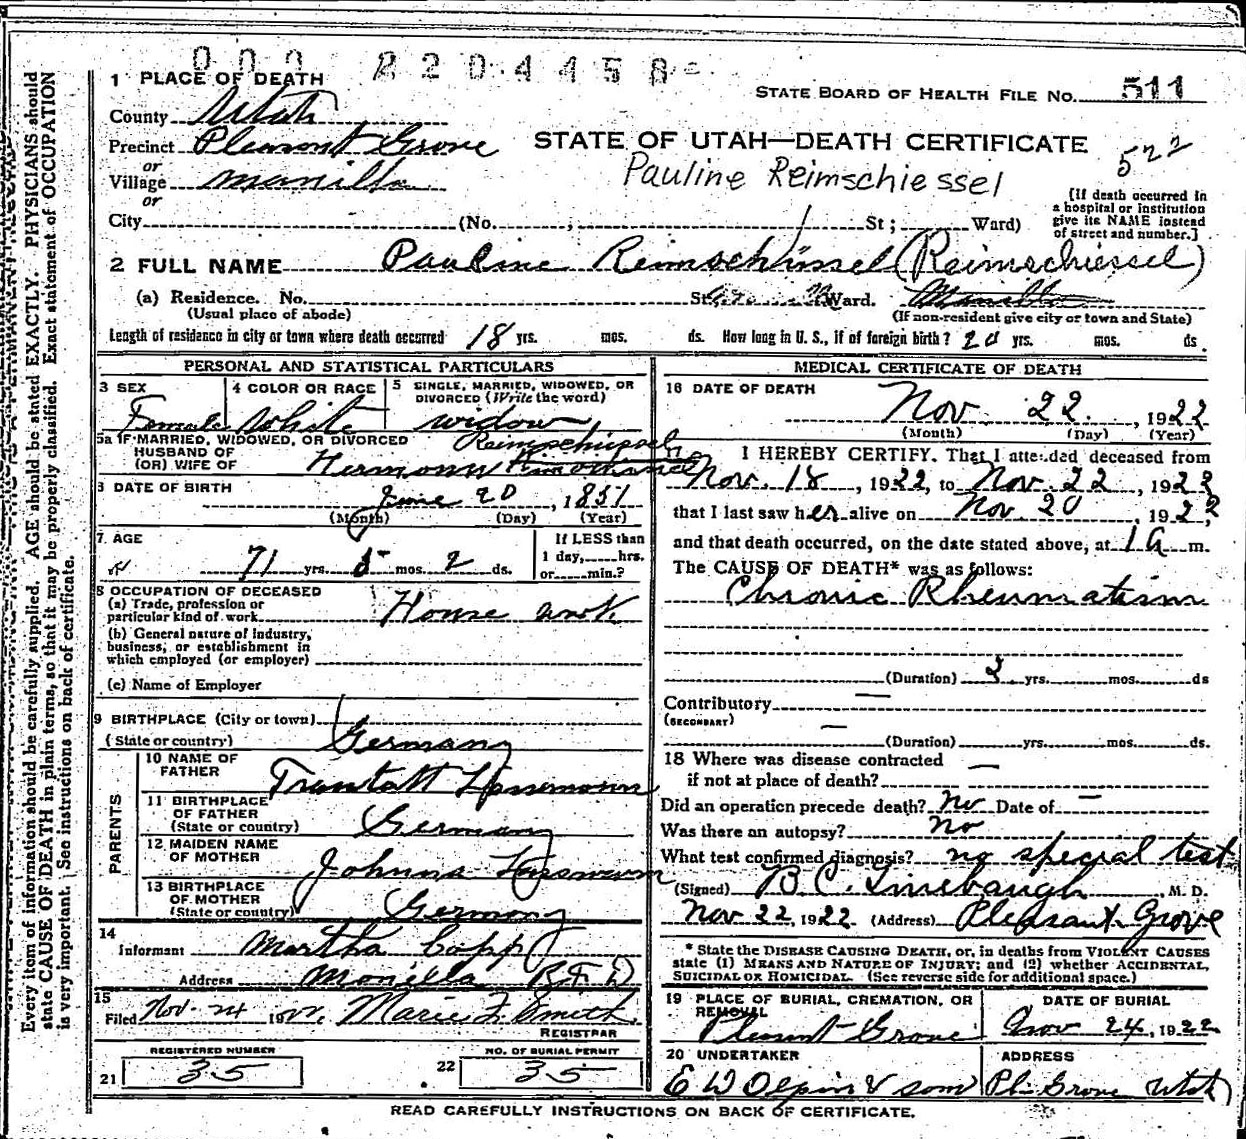 000 2204458
1 PLACE OF DEATH
STATE BOARD OF HEALTH FILE NO. 511
County Utah
Precinct Pleasant Grove
STATE OF UTAH—DEATH CERTIFICATE
522
or
Village Manilla
Pauline Reimschiessel
or
City (No. , St; Ward)
[If death occurred in a hospital or institution give its NAME instead of street and number.]
2 FULL NAME Pauline Reimschüssel (Reimschiessel)
(a) Residence. No. St. Ward. Manilla
(Usual place of abode)
(If non-resident give city or town and State)
Length of residence in city or town where death occurred 18 yrs. mos. ds. How long in U. S., if of foreign birth? 20 yrs. mos. ds.
PERSONAL AND STATISTICAL PARTICULARS
3 SEX Female
4 COLOR OR RACE White
5 SINGLE, MARRIED, WIDOWED, OR DIVORCED (Write the word) widow
5a IF MARRIED, WIDOWED, OR DIVORCED
HUSBAND OF
(OR) WIFE OF Hermann Reimschüssel
6 DATE OF BIRTH June 20, 1851
(Month) (Day) (Year)
7. AGE 71 yrs. 5 mos. 2 ds.
If LESS than
1 day, hrs.
or min.?
8 OCCUPATION OF DECEASED
(a) Trade, profession or
particular kind of work House work
(b) General nature of industry,
business, or establishment in
which employed (or employer)
(c) Name of Employer
9 BIRTHPLACE (City or town)
(State or country) Germany
PARENTS
10 NAME OF FATHER
11 BIRTHPLACE OF FATHER (State or country) Germany
12 MAIDEN NAME OF MOTHER Johnna
13 BIRTHPLACE OF MOTHER (State or country) Germany
14
Informant Martha Copp
Address Manilla R.F.D
15
Filed Nov. 24 1922, Marie L. Smith
REGISTRAR
REGISTERED NUMBER
21 35
NO. OF BURIAL PERMIT
22 35
MEDICAL CERTIFICATE OF DEATH
16 DATE OF DEATH
Nov 22, 1922
(Month) (Day) (Year)
I HEREBY CERTIFY. That I attended deceased from
Nov. 18, 1922, to Nov. 22, 1922
that I last saw her alive on Nov. 20 1922,
and that death occurred, on the date stated above, at 1 a m.
The CAUSE OF DEATH* was as follows:
Chronic Rheumatism
(Duration) 2 yrs. mos. ds
Contributory —
(SECONDARY)
(Duration) yrs. mos. ds.
18 Where was disease contracted
if not at place of death? —
Did an operation precede death? no Date of —
Was there an autopsy? no
What test confirmed diagnosis? no special test
(Signed) B C. Linebaugh M. D.
Nov 22, 1922 (Address) Pleasant Grove
* State the DISEASE CAUSING DEATH, or, in deaths from VIOLENT CAUSES
state (1) MEANS AND NATURE OF INJURY; and (2) whether ACCIDENTAL,
SUICIDAL OR HOMICIDAL. (See reverse side for additional space.)
19 PLACE OF BURIAL, CREMATION, OR REMOVAL Pleasant Grove
DATE OF BURIAL Nov 24, 1922
20 UNDERTAKER E W Olpin & son
ADDRESS Pl. Grove Utah
READ CAREFULLY INSTRUCTIONS ON BACK OF CERTIFICATE.
Every item of information should be carefully supplied. AGE should be stated EXACTLY. PHYSICIANS should
state CAUSE OF DEATH in plain terms, so that it may be properly classified. Exact statement of OCCUPATION
is very important. See instructions on back of certificate.